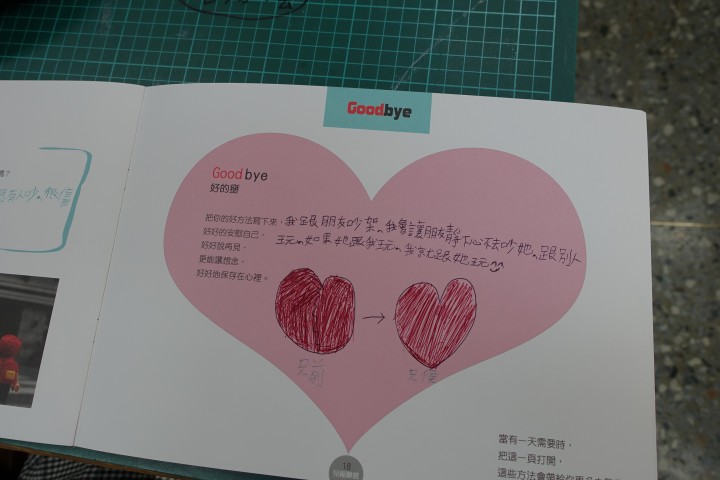 Goodbye
Good bye
好的掰
把你的好方法寫下來，
好好的安慰自己，
好好說再見，
更能讓想念，
好好地保存在心裡。
我跟朋友吵架。我會讓朋友靜下心不去吵她。跟別人
玩。如果她跟我玩。我就跟她玩
→
前
18
當有一天需要時，
把這一頁打開，